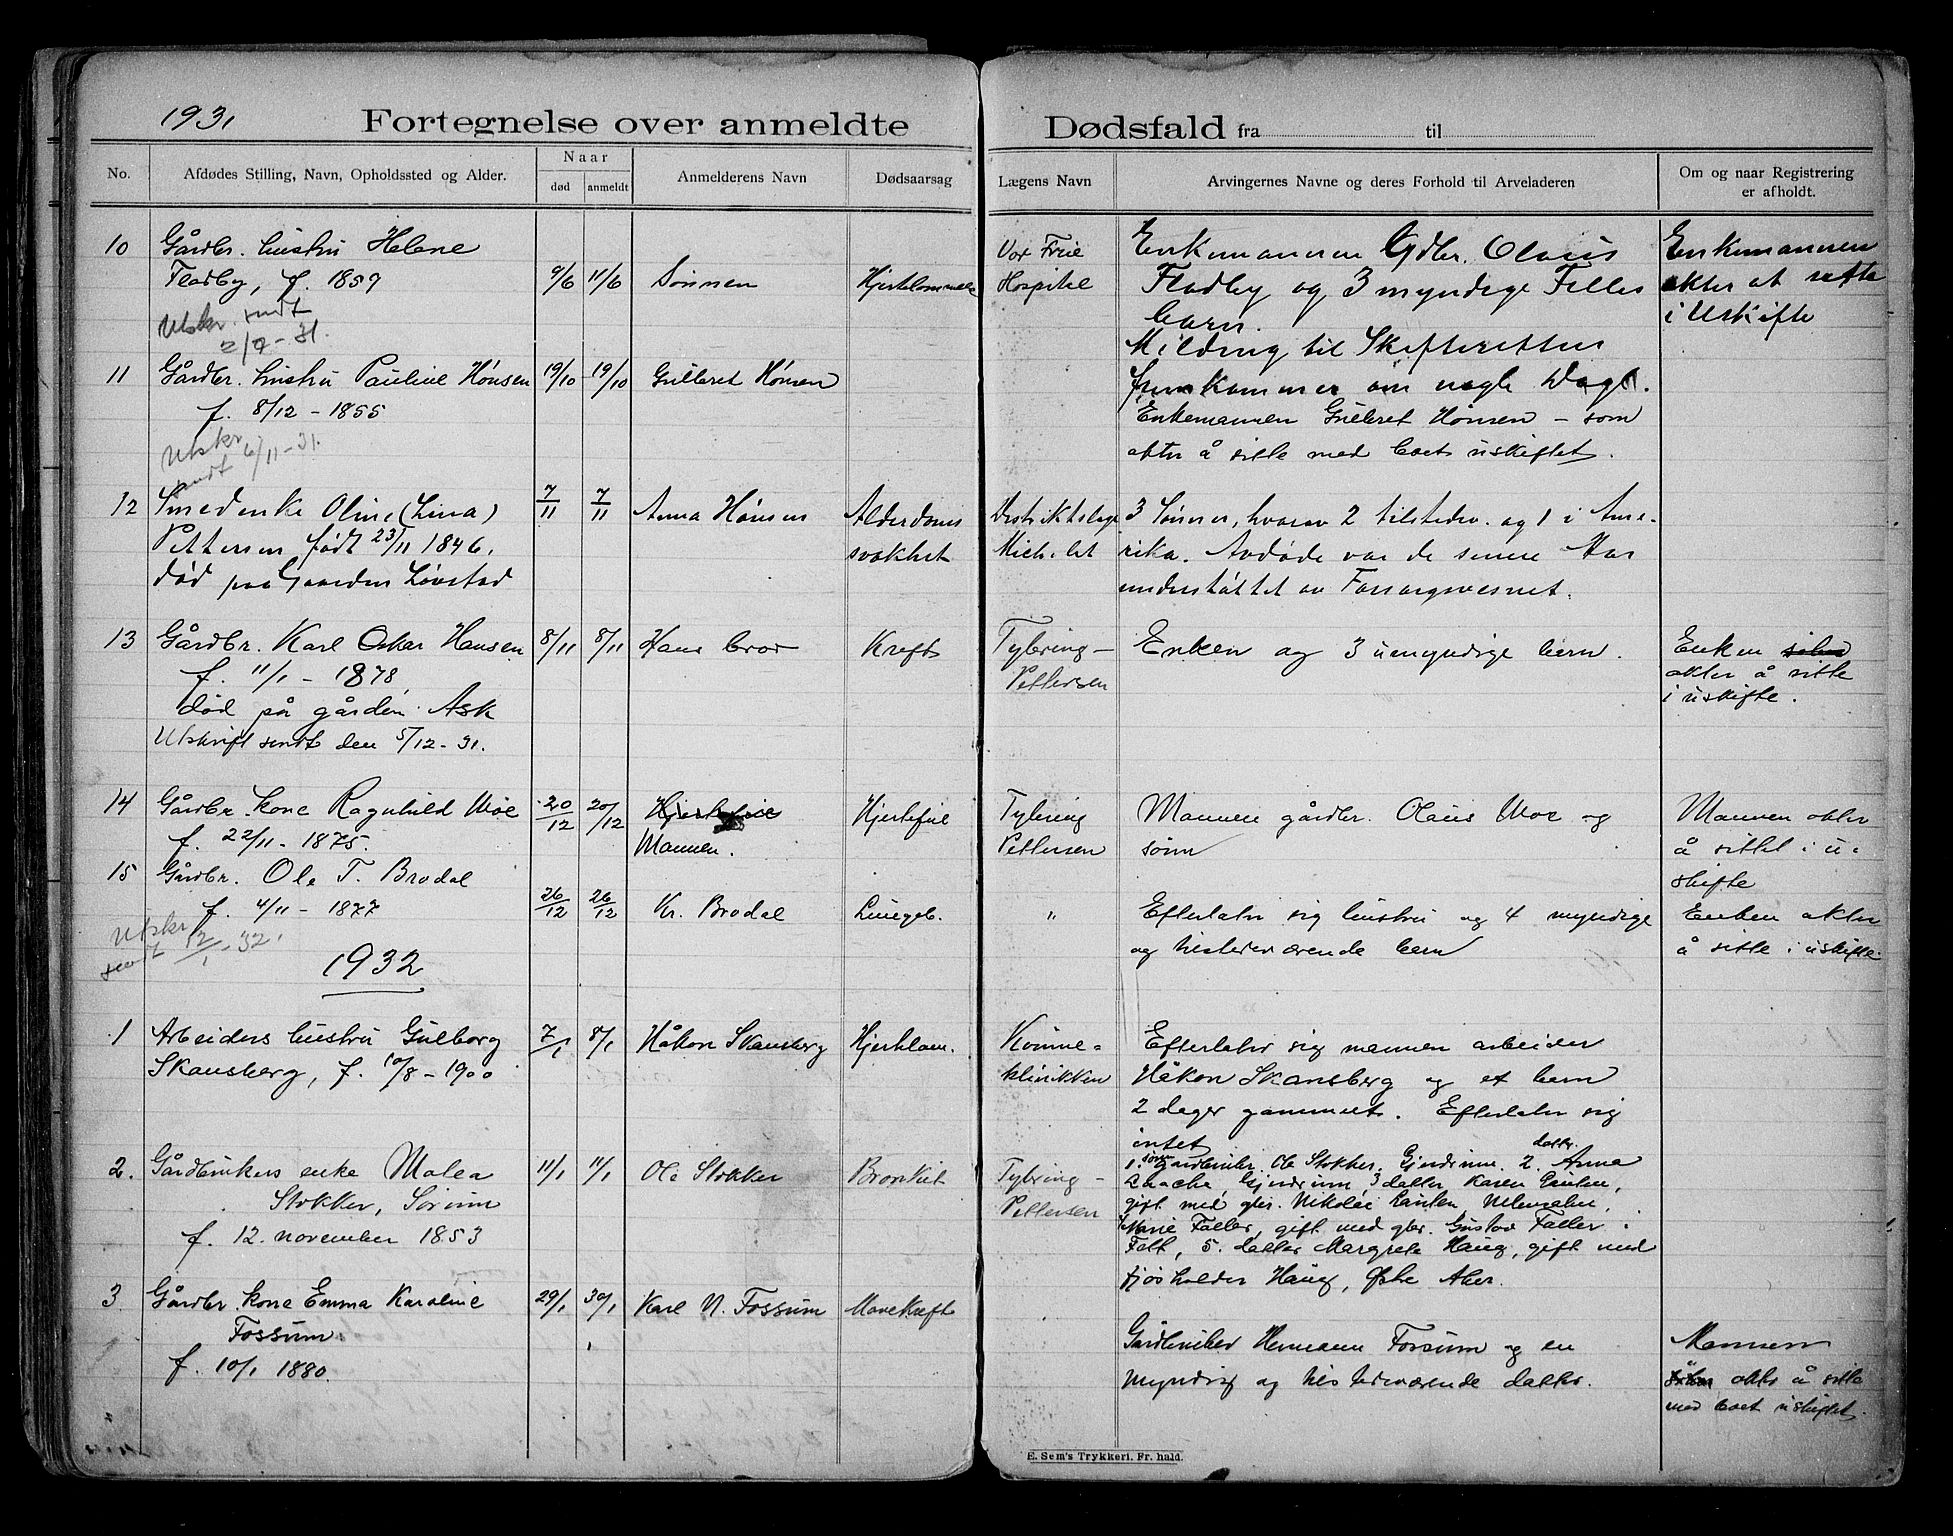 1931
Fortegnelse over anmeldte Dødsfald fra til
No.
Afdødes Stilling, Navn, Opholdssted og Alder.
Naar
død
anmeldt
Anmelderens Navn
Dødsaarsag
Lægens Navn
Arvingernes Navne og deres Forhold til Arveladeren
Om og naar Registrering
er afholdt.
10
Gårdbr. hustru Helene
Fladby, f. 1859
Utskr. sendt
2/7-31.
9/6
11/6
Sønnen
Vor Frue
Hospital
Enkemannen Gdbr. Olaus
Fladby og 3 myndige Felles
barn.
Melding til Skifteretten
fremkommer om nogle Dage.
Enkemannen
akter at sitte
i Uskifte
11
Gårdbr. hustru Pauline Hønsen
f. 8/12 - 1855
Utskr
sendt 6/11-31.
19/10
19/10
Gulleret Hønsen
Enkemannen Gulleret Hønsen - som
akter å sitte med boet uskiftet.
12
Smedenke Oline (Lina)
Pettersen født 23/11 1846.
død paa Gaarden Løvstad
7/11
7/11
Anna Hønsen
Alderdoms
svakhet
Distriktslæge
Michelet
3 Sønner, hvorav 2 tilstede. og 1 i Ame-
rika. Avdøde var de senere Aar
understøttet av Forsorgsvesnet.
13
Gårdbr. Karl Oskar Hansen
f. 11/1 - 1878,
død på gården Ask
Utskrift sendt den 5/12-31.
8/11
8/11
Hans bror
Kreft
Tybring-
Pettersen
Enken og 3 umyndige barn.
Enken
akter å sitte
i uskifte.
14
Gårdbr. kone Ragnhild Moe
f. 22/11 - 1875.
20/12
20/12
Hjertefeil
Mannen.
Hjertefeil
Tybring
Pettersen
Mannen gårdbr. Olaus Moe og
sønn
Mannen akter
å sittet i u-
skifte
15
Gårdbr. Ole T. Brodal
f. 4/11 - 1877
Utskr
sendt 12/1-32.
26/12
26/12
Kr. Brodal
Lungeb.
"
Efterlater sig hustru og 4 myndige
og tilstedeværende barn
Enken akter
å sitte i uskifte.
1932
1
Arbeiders hustru Gulborg
Skansberg, f. 10/8 - 1900
7/1
8/1
Håkon Skansberg
Hjerklam.
Kvinne-
klinikken
Efterlater sig mannen arbeider
Håkon Skansberg og et barn
2 dager gammelt. Efterlater sig
intet
2.
Gårdbrukers enke Malea
Stokker, Sørum
f. 12. november 1853
11/1
11/1
Ole Stokker
Bronkit
Tybring-
Pettersen
1. sønn Gardbruker Ole Stokker, Gjerdrum. 2. datter Anna
Gjerdrum 3 datter Karen
gift med gbr. Nikolai
Marie Faller, gift med gbr. Gustav Faller i
Fett, 5. datter Margrete Haug, gift med
fjøsholder Haug, Østre Aker.
3
Gårdbr kone Emma Karoline
Fossum
f. 10/1 1880.
29/1
30/1
Karl N. Fossum
Mavekreft
Gårdbruker Hermann Fossum og en
myndig og tilstedeværende datter.
Mannen
akter å sitte
med boet uskiftet.
E. Sem's Trykkeri. Fr. hald.